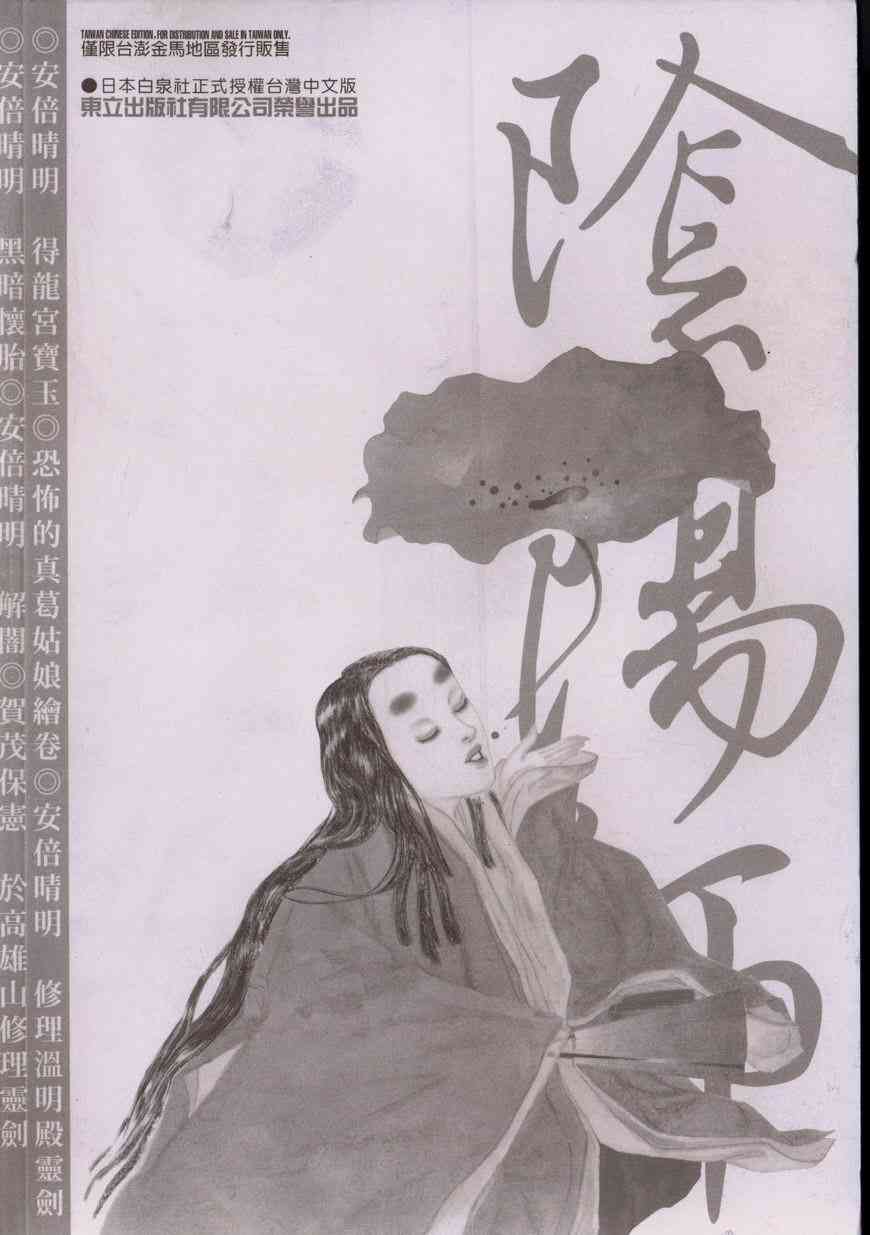 TAIWAN CHINESE EDITION, FOR DISTRIBUTION AND SALE IN TAIWAN ONLY.
僅限台澎金馬地區發行販售
●日本白泉社正式授權台灣中文版
東立出版社有限公司榮譽出品
陰陽師
◎安倍晴明 得龍宮寶玉◎恐怖的真葛姑娘繪卷◎安倍晴明 修理溫明殿靈劍
◎安倍晴明 黑暗懷胎◎安倍晴明 解闇◎賀茂保憲 於高雄山修理靈劍